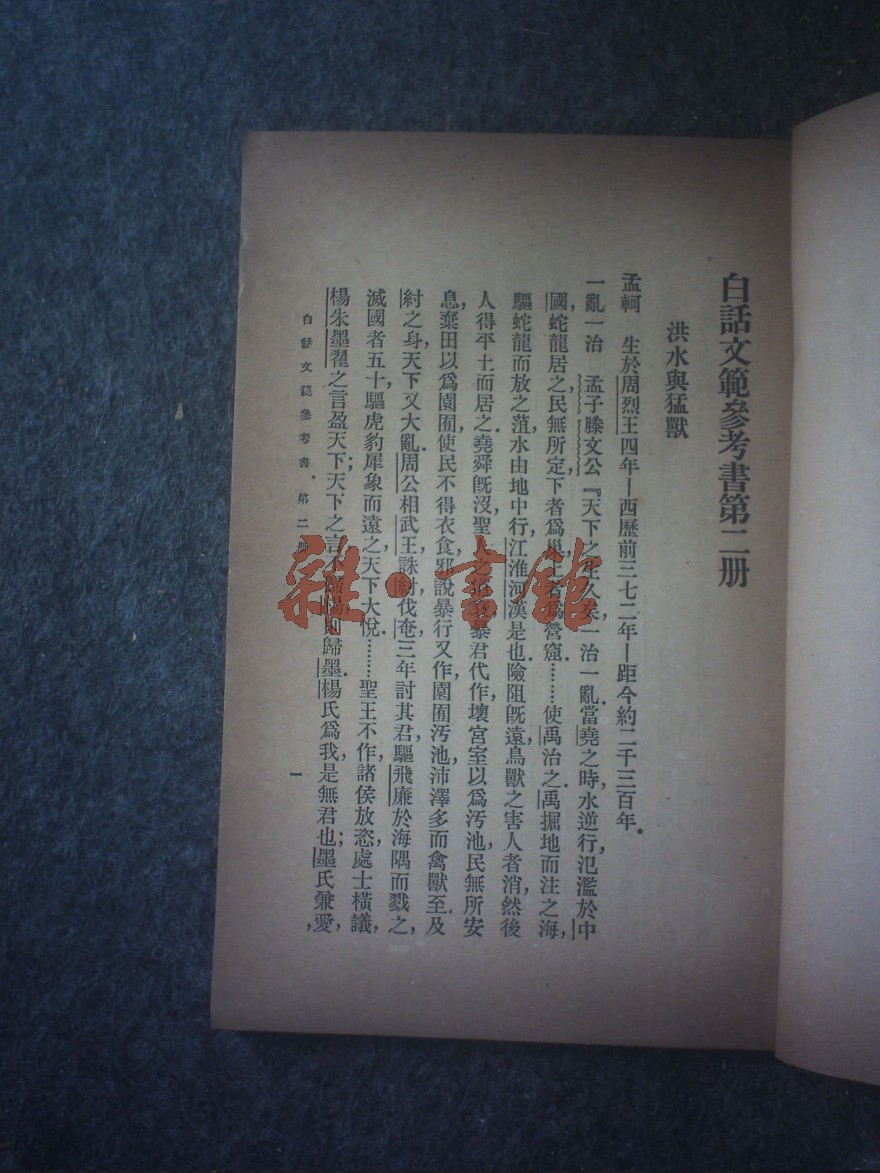 白話文範參考書第二册
洪水與猛獸
孟軻　生於周烈王四年—西歷前三七二年—距今約二千三百年。
一亂一治　孟子滕文公『天下之生久矣，一治一亂。當堯之時，水逆行，氾濫於中
國，蛇龍居之，民無所定，下者爲巢，上者爲營窟。……使禹治之，禹掘地而注之海，
驅蛇龍而放之菹，水由地中行，江淮河漢是也。險阻旣遠，鳥獸之害人者消，然後
人得平土而居之。堯舜旣沒，聖人之道衰，暴君代作，壞宮室以爲汚池，民無所安
息，棄田以爲園囿，使民不得衣食，邪說暴行又作，園囿汚池沛澤多而禽獸至。及
紂之身，天下又大亂。周公相武王，誅紂，伐奄，三年討其君，驅飛廉於海隅而戮之，
滅國者五十，驅虎豹犀象而遠之，天下大悅。……聖王不作，諸侯放恣，處士橫議，
楊朱墨翟之言盈天下；天下之言不歸楊則歸墨。楊氏爲我，是無君也；墨氏兼愛，
白話文範參考書 第二册
一
雜·書館